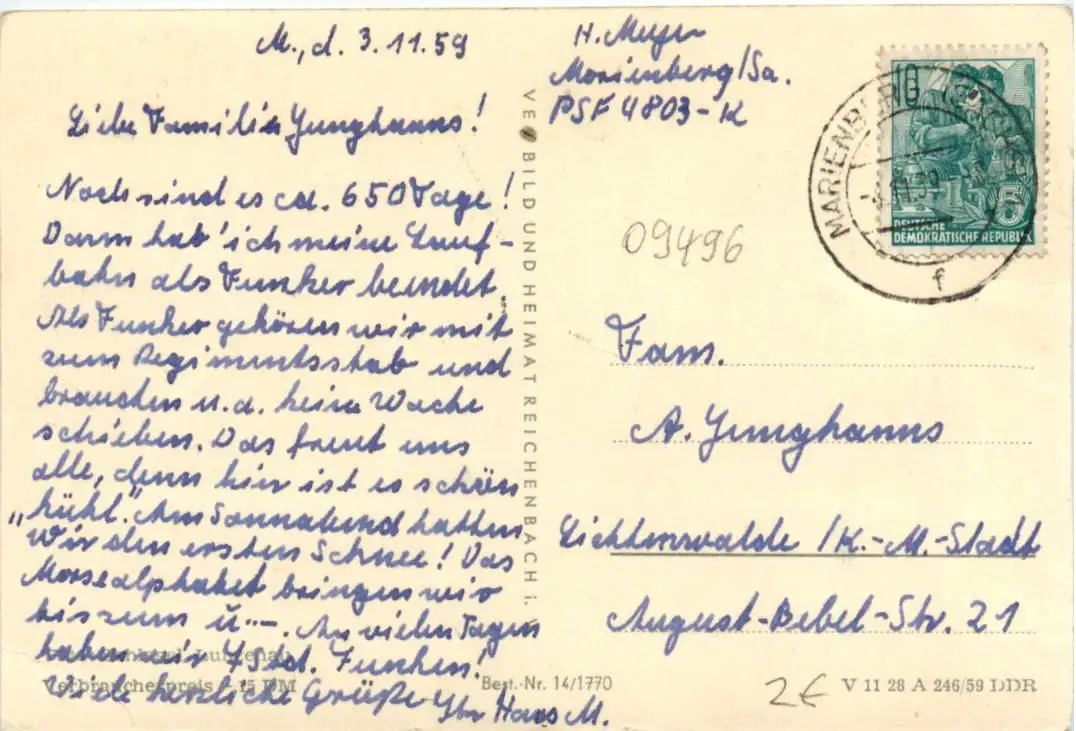 M., d. 3.11.59
Liebe Familie Junghanns!
Noch sind es ca. 650 Tage!
Dann hab' ich meine Lauf-
bahn als Funker beendet.
Als Funker gehören wir mit
zum Regimentsstab und
brauchen u.a. keine Wache
schieben. Das freut uns
alle, denn hier ist es schön
„kühl". Am Sonnabend hatten
wir den ersten Schnee! Das
Morsealphabet bringen wir
bis zum ü··--. An vielen Tagen
haben wir 4 Std. Funken!
Viele herzliche Grüße Ihr Hans M.
Verbraucherpreis -,15 DM
Best.-Nr. 14/1770
VEB BILD UND HEIMAT REICHENBACH i.
H. Meyer
Marienberg/Sa.
PSF 4803-K
MARIENBERG
f
DEUTSCHE
DEMOKRATISCHE REPUBLIK
5
09496
Fam.
A. Junghanns
Lichtenwalde /K.-M.-Stadt
August-Bebel-Str. 21
2€
V 11 28 A 246/59 DDR